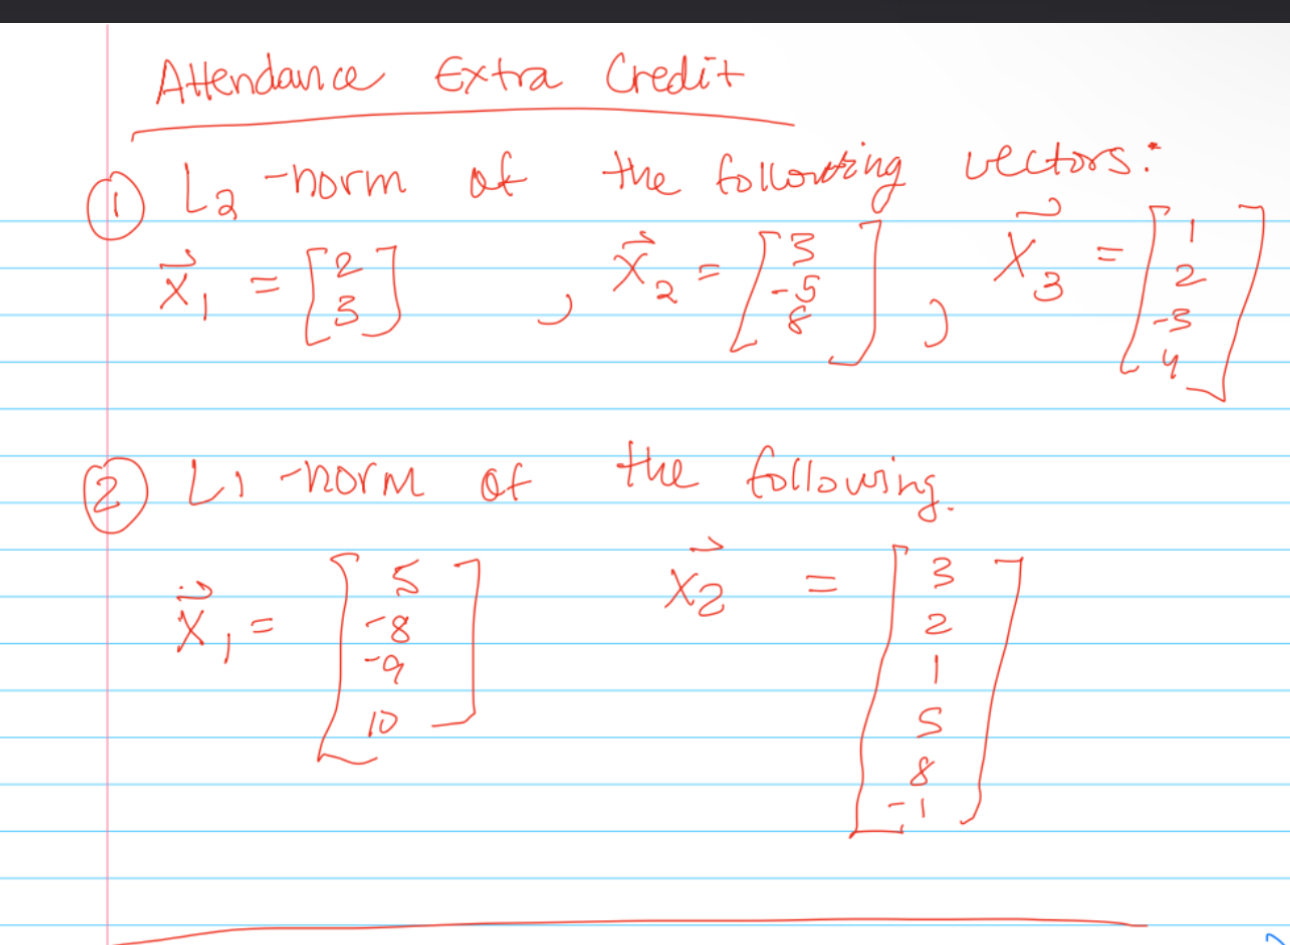 Attendance Extra Credit
① L2 -norm of the following vectors:
x⃗1 = [2 3] , x⃗2 = [3 -5 8] , x⃗3 = [1 2 -3 4]
② L1 -norm of the following.
x⃗1 = [5 -8 -9 10] x⃗2 = [3 2 1 5 8 -1]